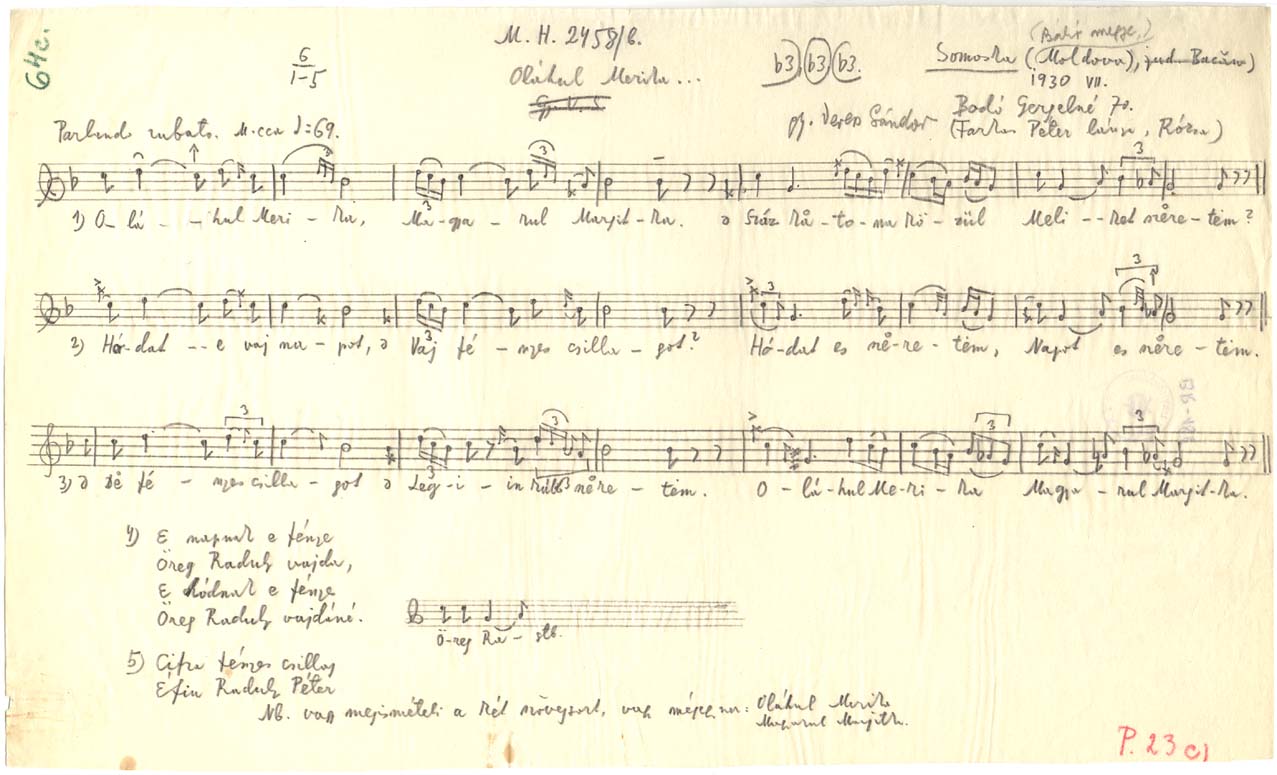 64c.
6
1-5
M. H. 2458/b.
Oláhul Merika...
b3, b3 b3.
(Bákó megye,)
Somoska (Moldova), jud. Bacău)
1930 VII.
Parlando rubato. M.cca ♩=69.
gy. Veres Sándor
Bodó Gergelné 70.
(Farkas Péter lánya, Rózsa)
1) O-lá--hul Meri-ka, Ma-gya-rul Margit-ka. ə Száz ka-to-na kö-zül Meli--ket sze̊re-tëm?
2) Hó-dat--e vaj na-pot, ə Vaj fé-nyes csilla-got? Hó-dat es sze̊-re-tëm, Napot es sze̊re-tëm.
3) ə De̊ fé-nyes csilla-got ə Leg-i-in-kább sze̊re-tëm. O-lá-hul Me-ri-ka Magya-rul Margit-ka.
4) E napnak e fénye
Öreg Raduly vajda,
E hódnak e fénye
Öreg Raduly vajdáné.
Ö-reg Ra- stb.
5) Cifra fényes csillag
Éfiu Raduly Péter
Nb. vagy megismételi a két szövegsort, vagy mégegyszer: Oláhul Merika
Magyarul Margitka.
P. 23 c)